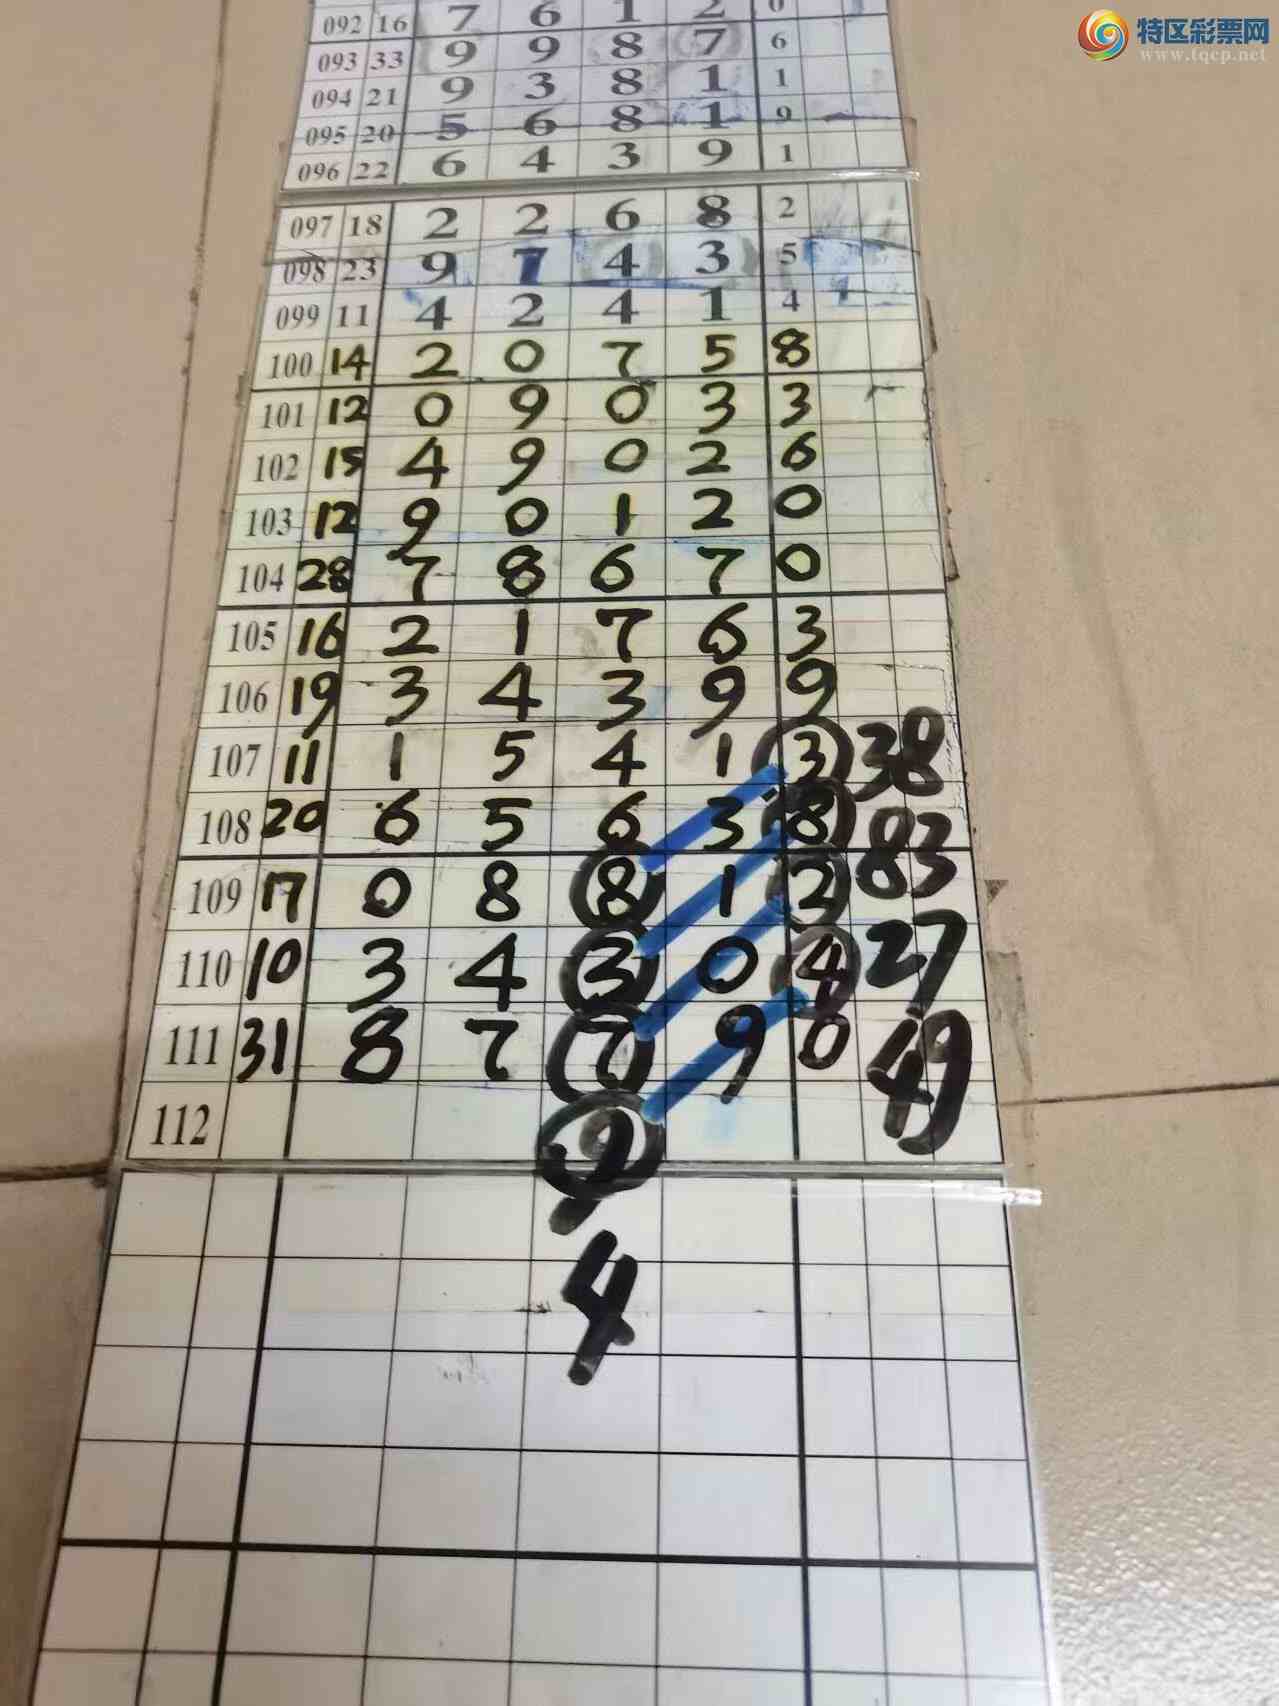 特区彩票网
www.tqcp.net
092 16 7 6 1 2 0
093 33 9 9 8 7 6
094 21 9 3 8 1 1
095 20 5 6 8 1 9
096 22 6 4 3 9 1
097 18 2 2 6 8 2
098 23 9 7 4 3 5
099 11 4 2 4 1 4
100 14 2 0 7 5 8
101 12 0 9 0 3 3
102 15 4 9 0 2 6
103 12 9 0 1 2 0
104 28 7 8 6 7 0
105 16 2 1 7 6 3
106 19 3 4 3 9 9
107 11 1 5 4 1 3 38
108 20 6 5 6 3 8 83
109 17 0 8 8 1 2
110 10 3 4 3 0 4 27
111 31 8 7 7 9 0 49
112
4